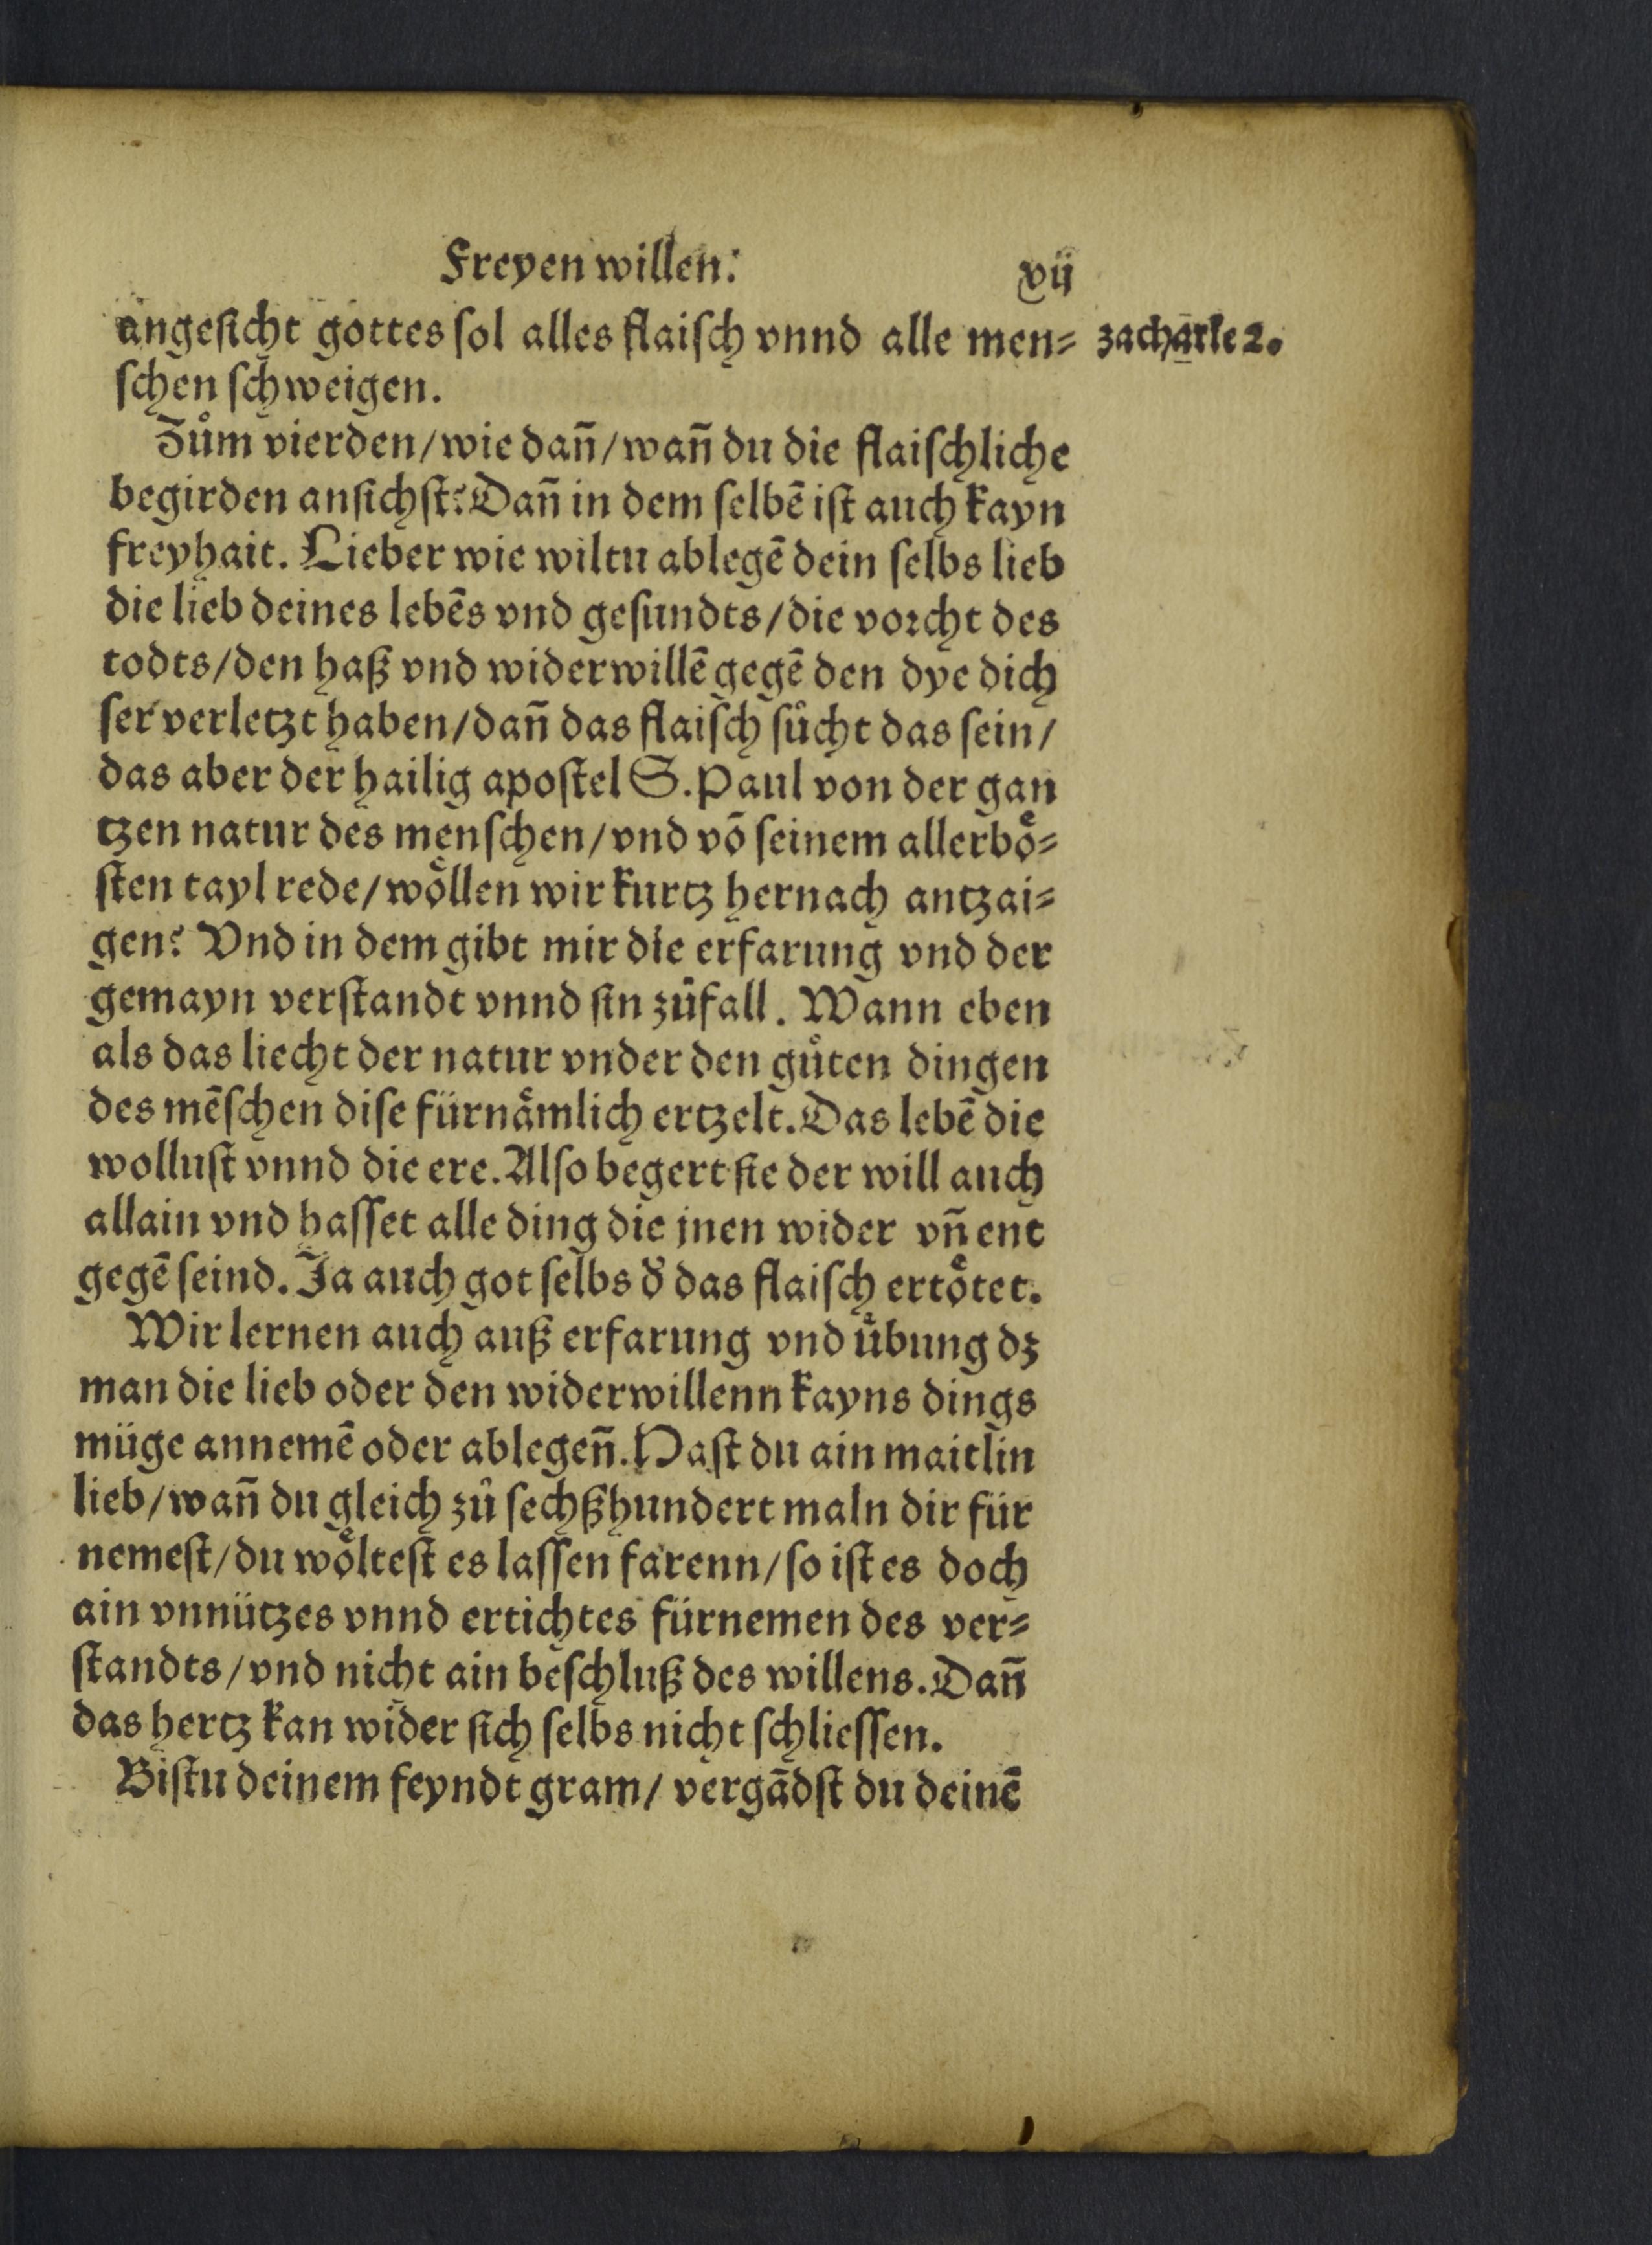 Freyen willen. vij
angesicht gottes sol alles flaisch vnnd alle men⸗ zacharie 2.
schen schweigen.
Zům vierden/wie dañ/wañ du die flaischliche
begirden ansichst? Dañ in dem selbē ist auch kayn
freyhait. Lieber wie wiltu ablegē dein selbs lieb
die lieb deines lebēs vnd gesundts/die vorcht des
todts/den haß vnd widerwillē gegē den dye dich
ser verletzt haben/dañ das flaisch sůcht das sein/
das aber der hailig apostel S. Paul von der gan
tzen natur des menschen/vnd vō seinem allerboͤ⸗
sten tayl rede/woͤllen wir kurtz hernach antzai⸗
gen? Vnd in dem gibt mir die erfarung vnd der
gemayn verstandt vnnd sin zůfall. Wann eben
als das liecht der natur vnder den gůten dingen
des mēschen dise fürnaͤmlich ertzelt. Das lebē die
wollust vnnd die ere. Also begert sie der will auch
allain vnd hasset alle ding die jnen wider vñ ent
gegē seind. Ja auch got selbs d̕ das flaisch ertoͤtet.
Wir lernen auch auß erfarung vnd uͤbung dz
man die lieb oder den widerwillenn kayns dings
müge annemē oder ablegeñ. Hast du ain maitlin
lieb/wañ du gleich zů sechßhundert maln dir für
nemest/du woͤltest es lassen farenn/so ist es doch
ain vnnützes vnnd ertichtes fürnemen des ver⸗
standts/vnd nicht ain beschluß des willens. Dañ
das hertz kan wider sich selbs nicht schliessen.
Bistu deinem feyndt gram/ vergādst du deinē